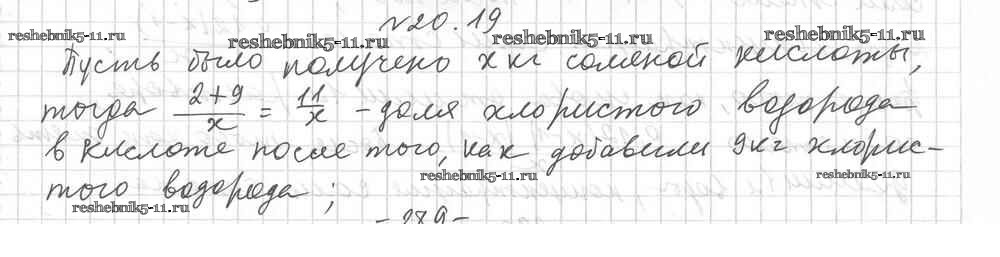 №20.19
Пусть было получено x кг соляной кислоты,
тогда (2+9)/x = 11/x - доля хлористого водорода
в кислоте после того, как добавили 9кг хлорис-
того водорода;
reshebnik5-11.ru
reshebnik5-11.ru
reshebnik5-11.ru
reshebnik5-11.ru
reshebnik5-11.ru
reshebnik5-11.ru
reshebnik5-11.ru